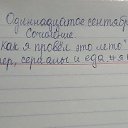 Одиннадцатое сентября
Сочинение.
"Как я провёл это лето"
сериалы и еда